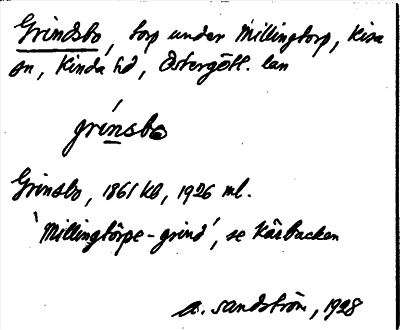 Grindsbo, torp under Millingtorp, Kisa
sn, Kinda hd, Östergötl. län
grínsbo
Grinsbo, 1861 kb, 1926 ml.
'Millingtorpe-grind', se Kärbacken
A. Sandström, 1928